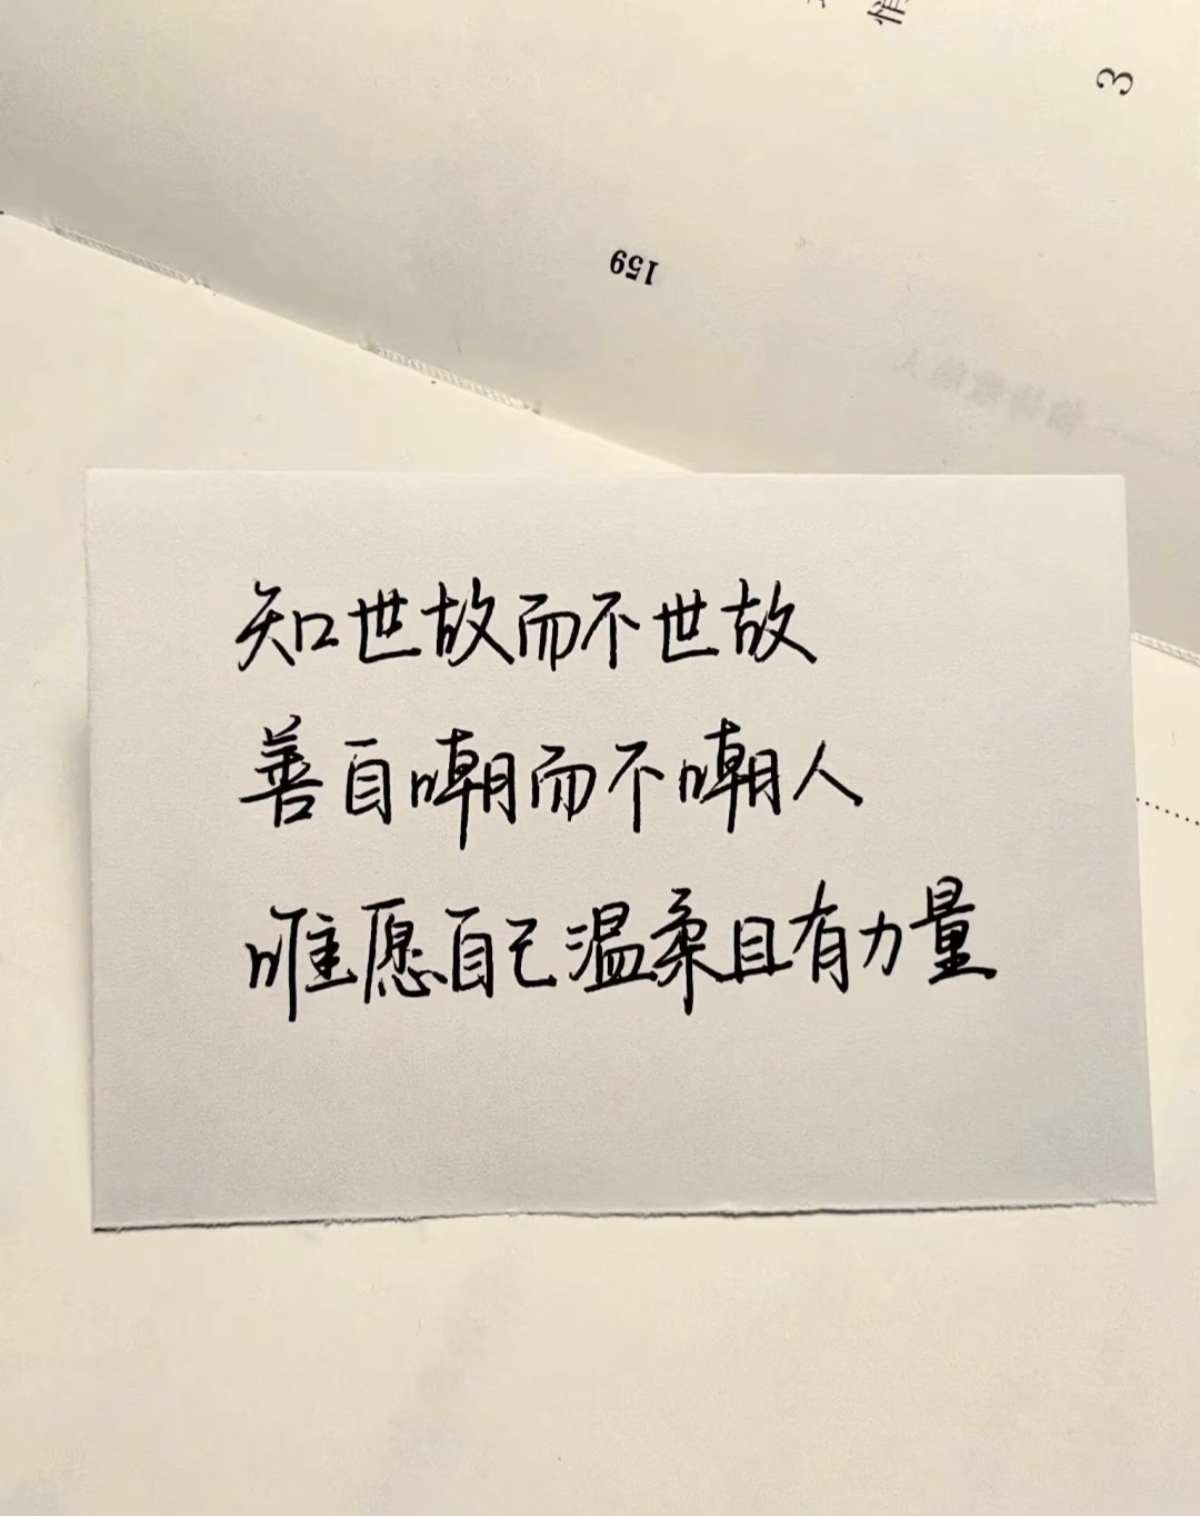 3
159
知世故而不世故
善自嘲而不嘲人
唯愿自己温柔且有力量